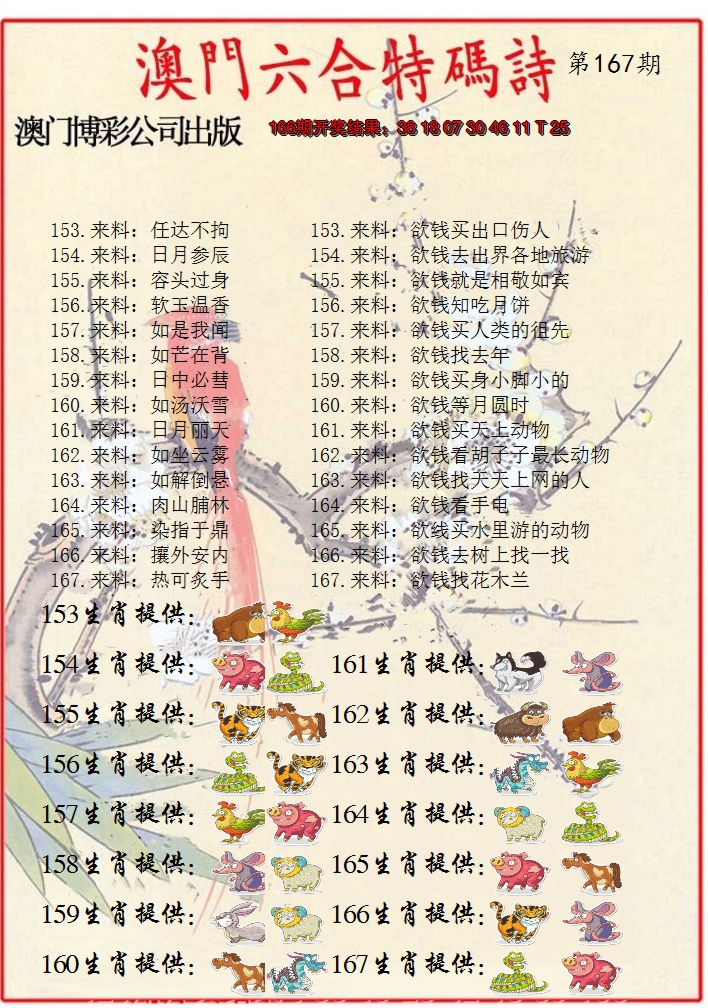 澳門六合特碼詩 第167期
澳门博彩公司出版 166期开奖结果：38 18 07 30 46 11 T 25
153.来料：任达不拘 153.来料：欲钱买出口伤人
154.来料：日月参辰 154.来料：欲钱去出界各地旅游
155.来料：容头过身 155.来料：欲钱就是相敬如宾
156.来料：软玉温香 156.来料：欲钱知吃月饼
157.来料：如是我闻 157.来料：欲钱买人类的祖先
158.来料：如芒在背 158.来料：欲钱找去年
159.来料：日中必彗 159.来料：欲钱买身小脚小的
160.来料：如汤沃雪 160.来料：欲钱等月圆时
161.来料：日月丽天 161.来料：欲钱买天上动物
162.来料：如坐云雾 162.来料：欲钱看胡子子最长动物
163.来料：如解倒悬 163.来料：欲钱找天天上网的人
164.来料：肉山脯林 164.来料：欲钱看手电
165.来料：染指于鼎 165.来料：欲线买水里游的动物
166.来料：攘外安内 166.来料：欲钱去树上找一找
167.来料：热可炙手 167.来料：欲钱找花木兰
153生肖提供：
154生肖提供： 161生肖提供：
155生肖提供： 162生肖提供：
156生肖提供： 163生肖提供：
157生肖提供： 164生肖提供：
158生肖提供： 165生肖提供：
159生肖提供： 166生肖提供：
160生肖提供： 167生肖提供：